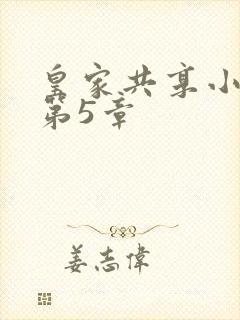 皇家共享小
第5章
姜志偉